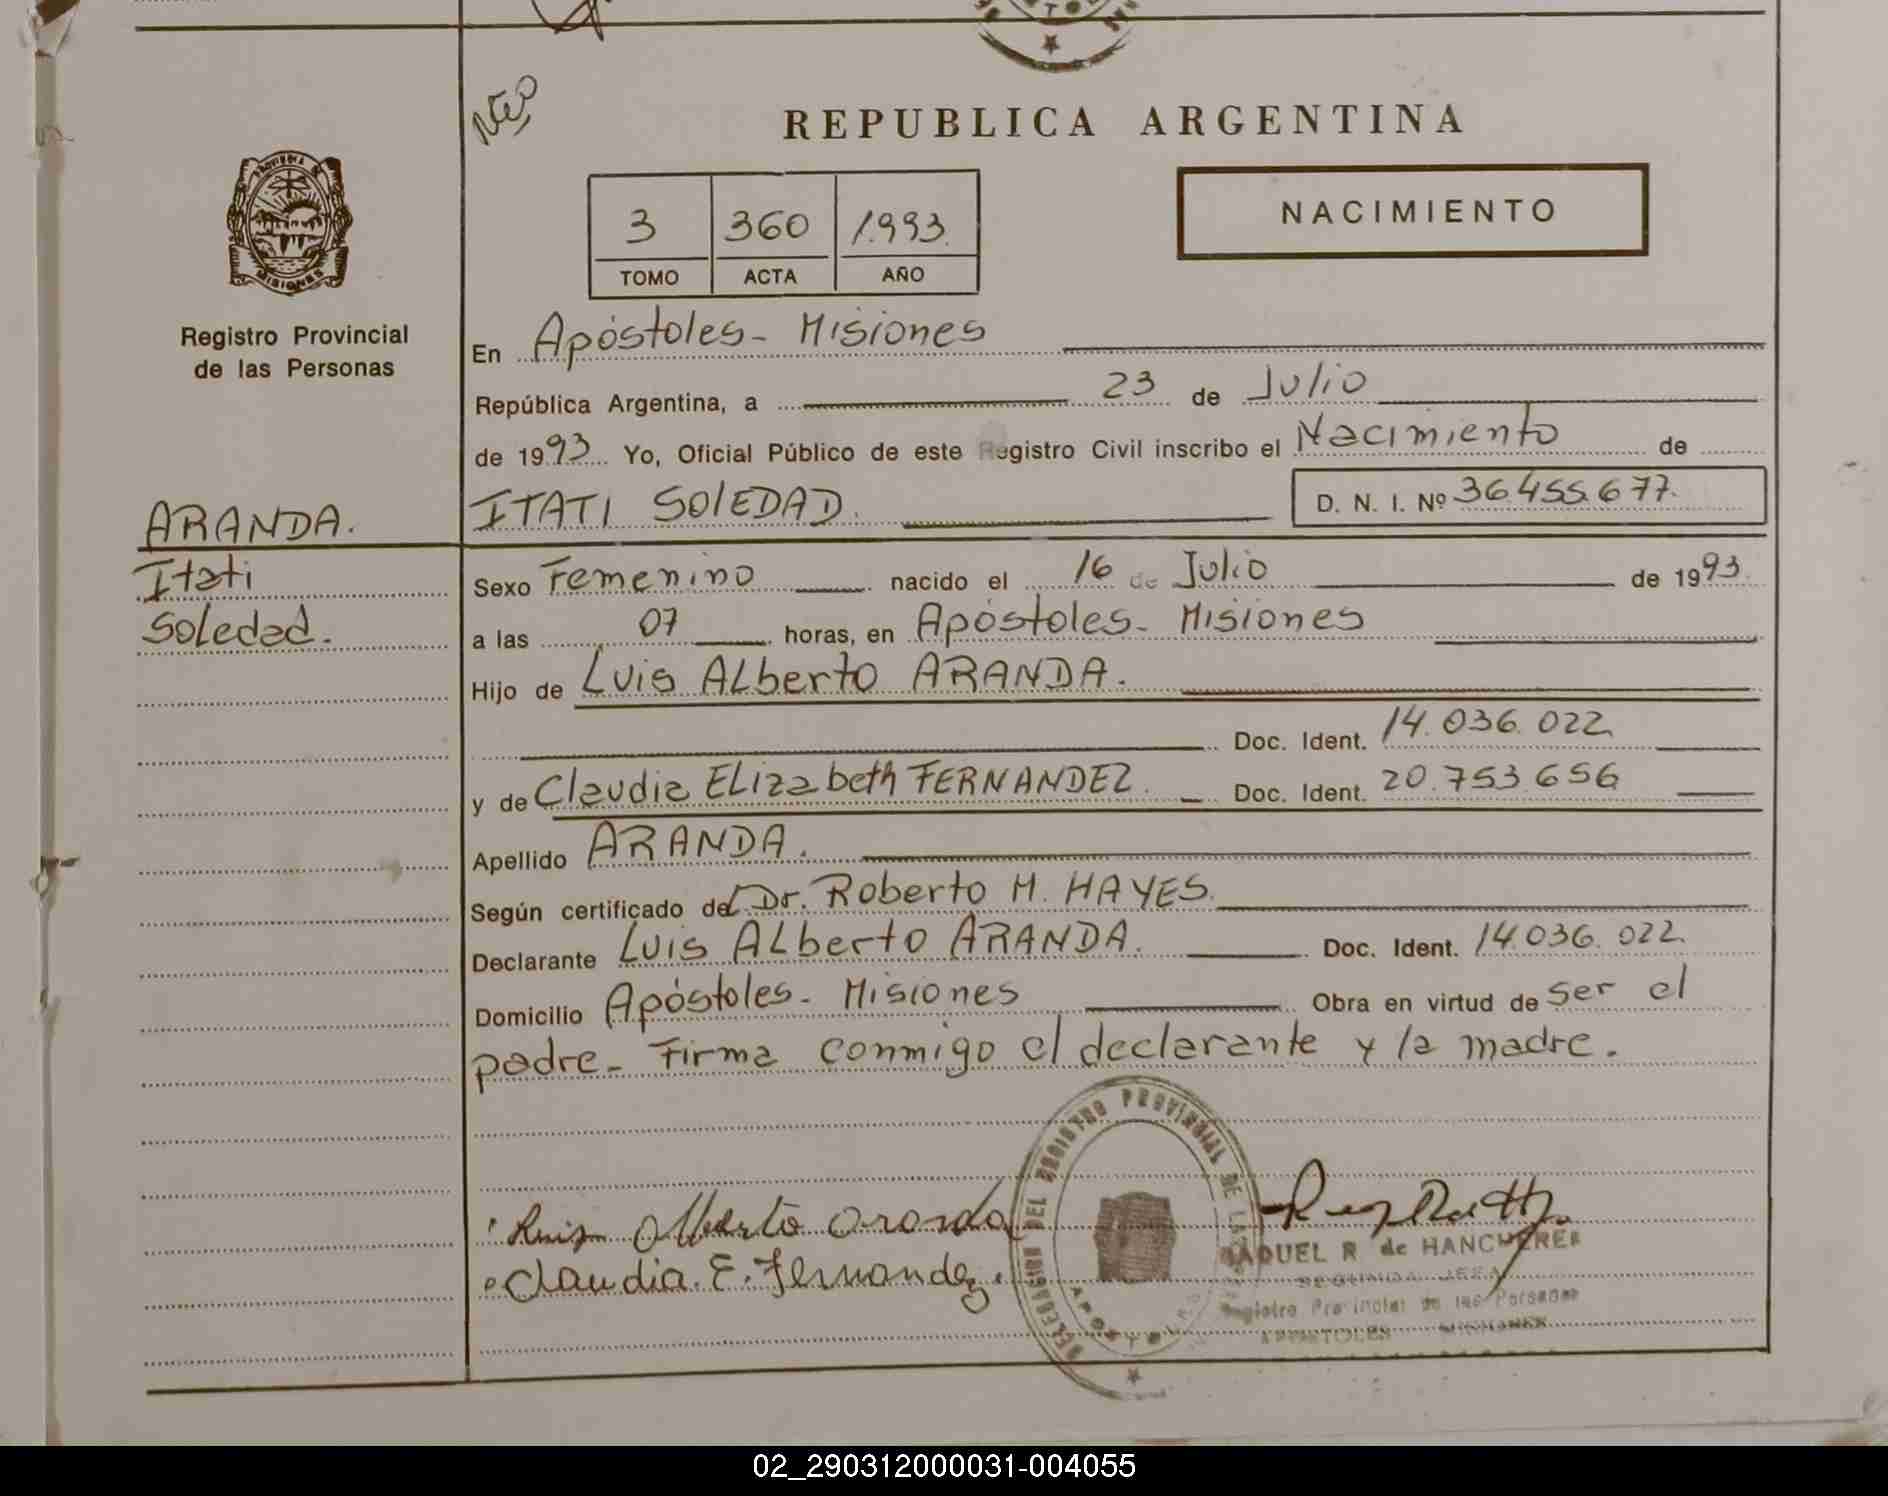 REPUBLICA ARGENTINA
3 360 1.993.
TOMO ACTA AÑO
NACIMIENTO
PROVINCIA DE
MISIONES
Registro Provincial
de las Personas
En Apóstoles - Misiones
República Argentina, a 23 de Julio
de 1993. Yo, Oficial Público de este Registro Civil inscribo el Nacimiento de
ARANDA.
ITATI SOLEDAD.
D. N. I. Nº 36.455.677.
Itati
Soledad.
Sexo Femenino nacido el 16 de Julio de 1993.
a las 07 horas, en Apóstoles - Misiones
Hijo de Luis Alberto ARANDA.
Doc. Ident. 14.036.022.
y de Claudia Elizabeth FERNANDEZ. Doc. Ident. 20.753.656
Apellido ARANDA.
Según certificado del Dr. Roberto M. HAYES.
Declarante Luis Alberto ARANDA. Doc. Ident. 14.036.022.
Domicilio Apóstoles - Misiones Obra en virtud de ser el
padre - Firma conmigo el declarante y la madre.
DEL REGISTRO PROVINCIAL DE LAS
Luis Alberto Aranda
Claudia. E. Fernandez.
RAQUEL R. de
SEGUNDA JEFA
Registro Provincial de las Personas
APOSTOLES MISIONES
02_290312000031-004055